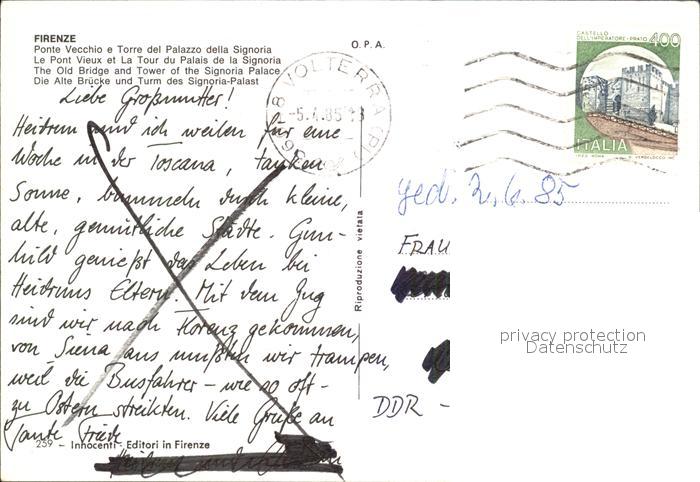 FIRENZE
Ponte Vecchio e Torre del Palazzo della Signoria
Le Pont Vieux et La Tour du Palais de la Signoria
The Old Bridge and Tower of the Signoria Palace
Die Alte Brücke und Turm des Signoria-Palast
O.P.A.
Liebe Großmutter!
Heidrun und ich weilen für eine
Woche in der Toscana, tanken
Sonne, bummeln durch kleine,
alte, gemütliche Städte. Gun-
hild genießt das Leben bei
Heidruns Eltern. Mit dem Zug
sind wir nach Florenz gekommen,
von Siena aus mußten wir trampen,
weil die Busfahrer - wie so oft -
zu Ostern streikten. Viele Grüße an
Tante Friede
259 - Innocenti Editori in Firenze
Heidrun und
Riproduzione vietata
VOLTERRA (PI)
-5.4.85
CASTELLO
DELL'IMPERATORE - PRATO
400
ITALIA
ged. 2.6.85
FRAU
DDR -
privacy protection
Datenschutz